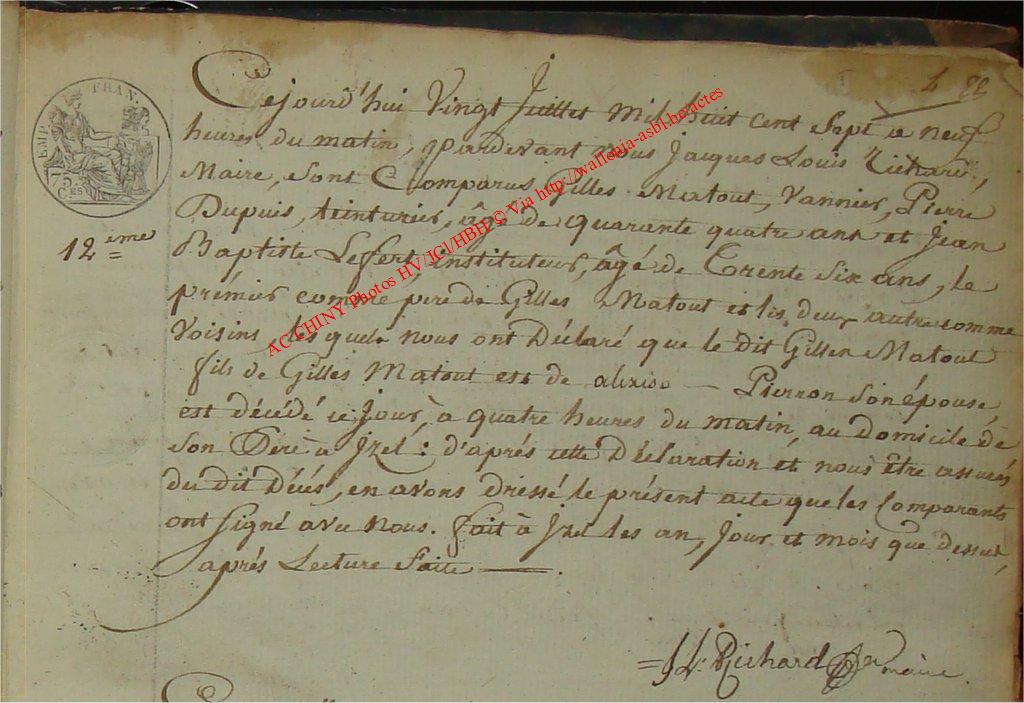 Cejourd'hui Vingt Juillet mil huit cent sept a neuf
heures du matin, pardevant nous Jacques Louis Richard,
Maire, sont Comparus Gilles Matout, Vannier, Pierre
Dupuis, teinturier, âgé de quarante quatre ans et Jean
12.eme
Baptiste Lefert, instituteur, âgé de Trente Six ans, le
prémier comme pere de Gilles Matout et les deux autre comme
Voisins, les quels nous ont Déclaré que le dit Gilles Matout
fils de Gilles Matout et de alixise — Pierron Son épouse,
est décédé ce Jour, à quatre heures du matin, au Domicile de
Son Pere à Izel : d'aprés cette Déclaration et nous être assurés
du dit Décés, en avons dressé le présent acte que les Comparants
ont signé avec nous. fait à Izel les an, Jour et mois que dessus,
aprés Lecture faite —.
= J L: Richard maire.
TIMP. EMP. FRAN.
C. ES
AC CHINY Photos HV/JCl/HBH © Via http://wallonia-asbl.be/actes